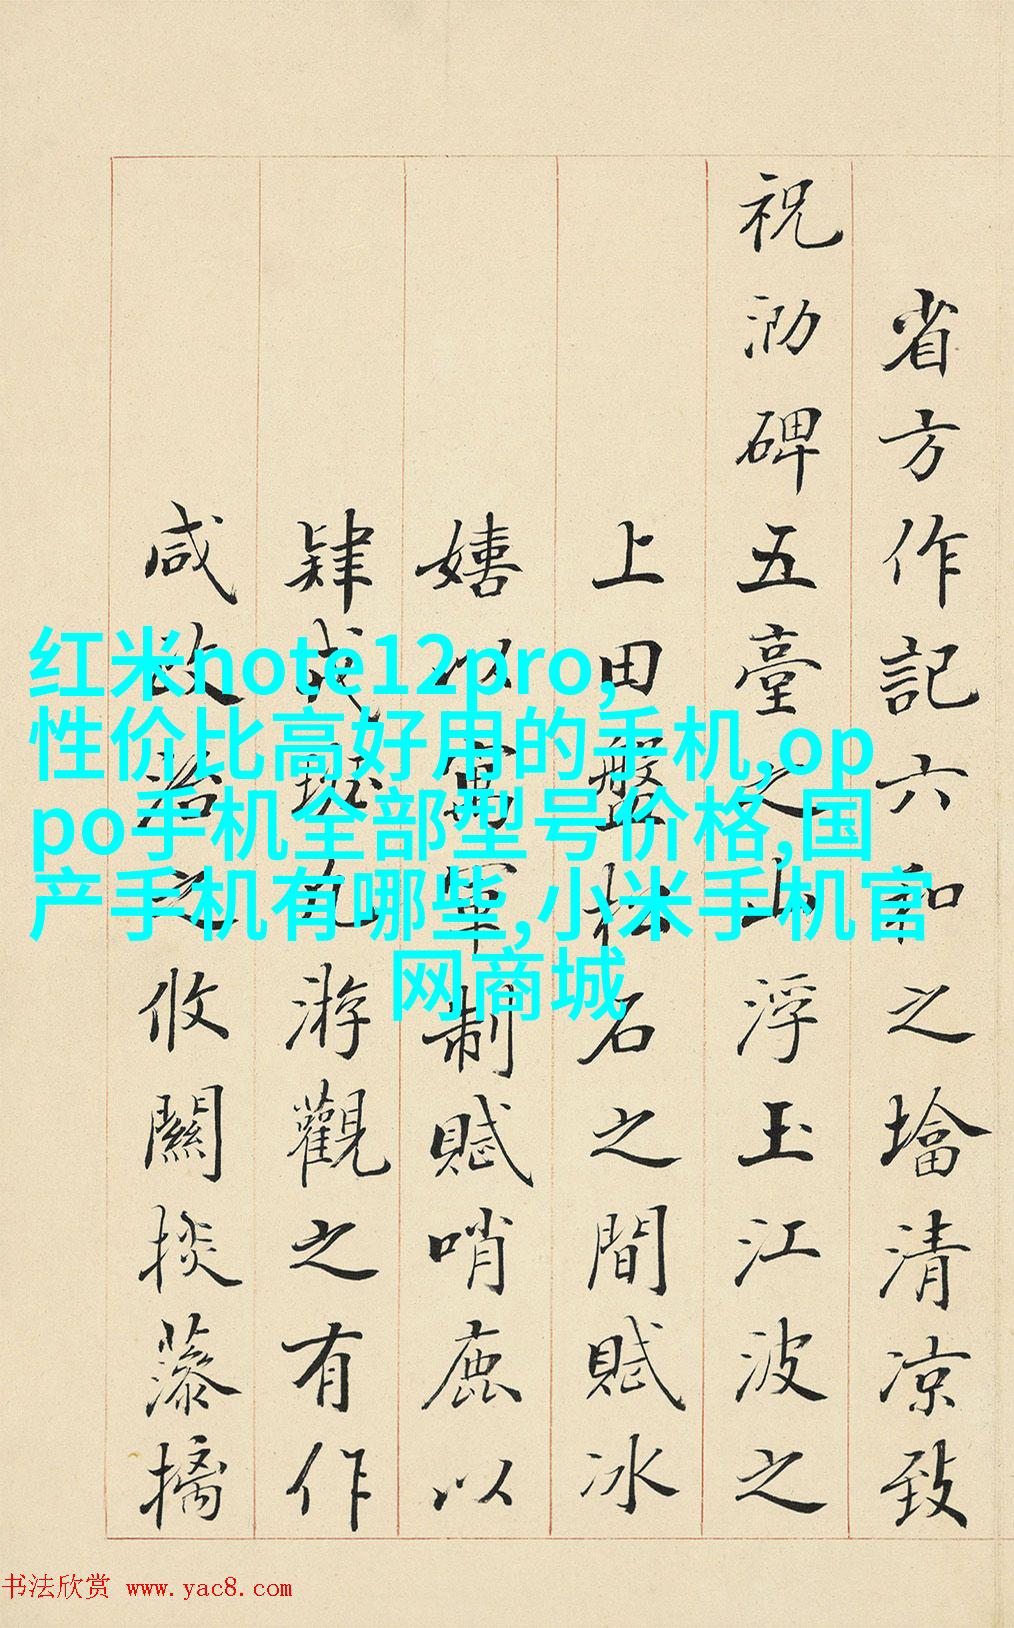 红米note12pro,
性价比高好用的手机,op
po手机全部型号价格,国
产手机有哪些,小米手机官
网商城
省方作記六和之墖清凉致
祝泐碑五臺之山浮玉江波之
上田盤松石之間賦冰
嬉以寓軍制賦哨鹿以
肄游觀之有作
咸之攸關掞藻摛
书法欣赏 www.yac8.com